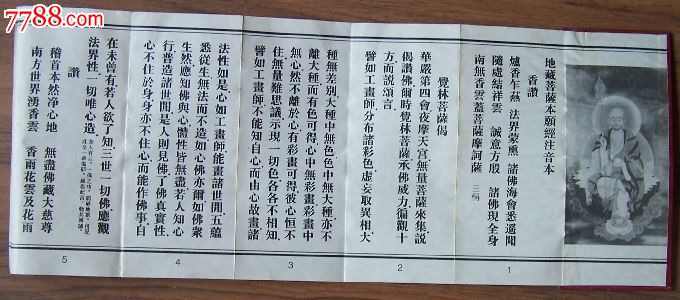 7788.com
地藏菩薩本願經注音本
香讚
爐香乍爇 法界蒙熏 諸佛海會悉遙聞
隨處結祥雲 誠意方殷 諸佛現全身
南無香雲蓋菩薩摩訶薩 三稱
1
覺林菩薩偈
華嚴第四會夜摩天宮無量菩薩來集說
偈讚佛爾時覺林菩薩承佛威力徧觀十
方而說頌言
譬如工畫師.分布諸彩色.虛妄取異相.大
2
種無差別.大種中無色.色中無大種.亦不
離大種.而有色可得.心中無彩畫.彩畫中
無心.然不離於心.有彩畫可得.彼心恒不
住.無量難思議.示現一切色.各各不相知.
譬如工畫師.不能知自心.而由心故畫.諸
3
法性如是.心如工畫師.能畫諸世間.五蘊
悉從生.無法而不造.如心佛亦爾.如佛眾
生然.應知佛與心.體性皆無盡.若人知心
行.普造諸世間.是人則見佛.了佛真實性.
心不住於身.身亦不住心.而能作佛事.自
4
在未曾有.若人欲了知.三世一切佛.應觀
法界性.一切唯心造.
讚
稽首本然淨心地 無盡佛藏大慈尊
南方世界湧香雲 香雨花雲及花雨
5